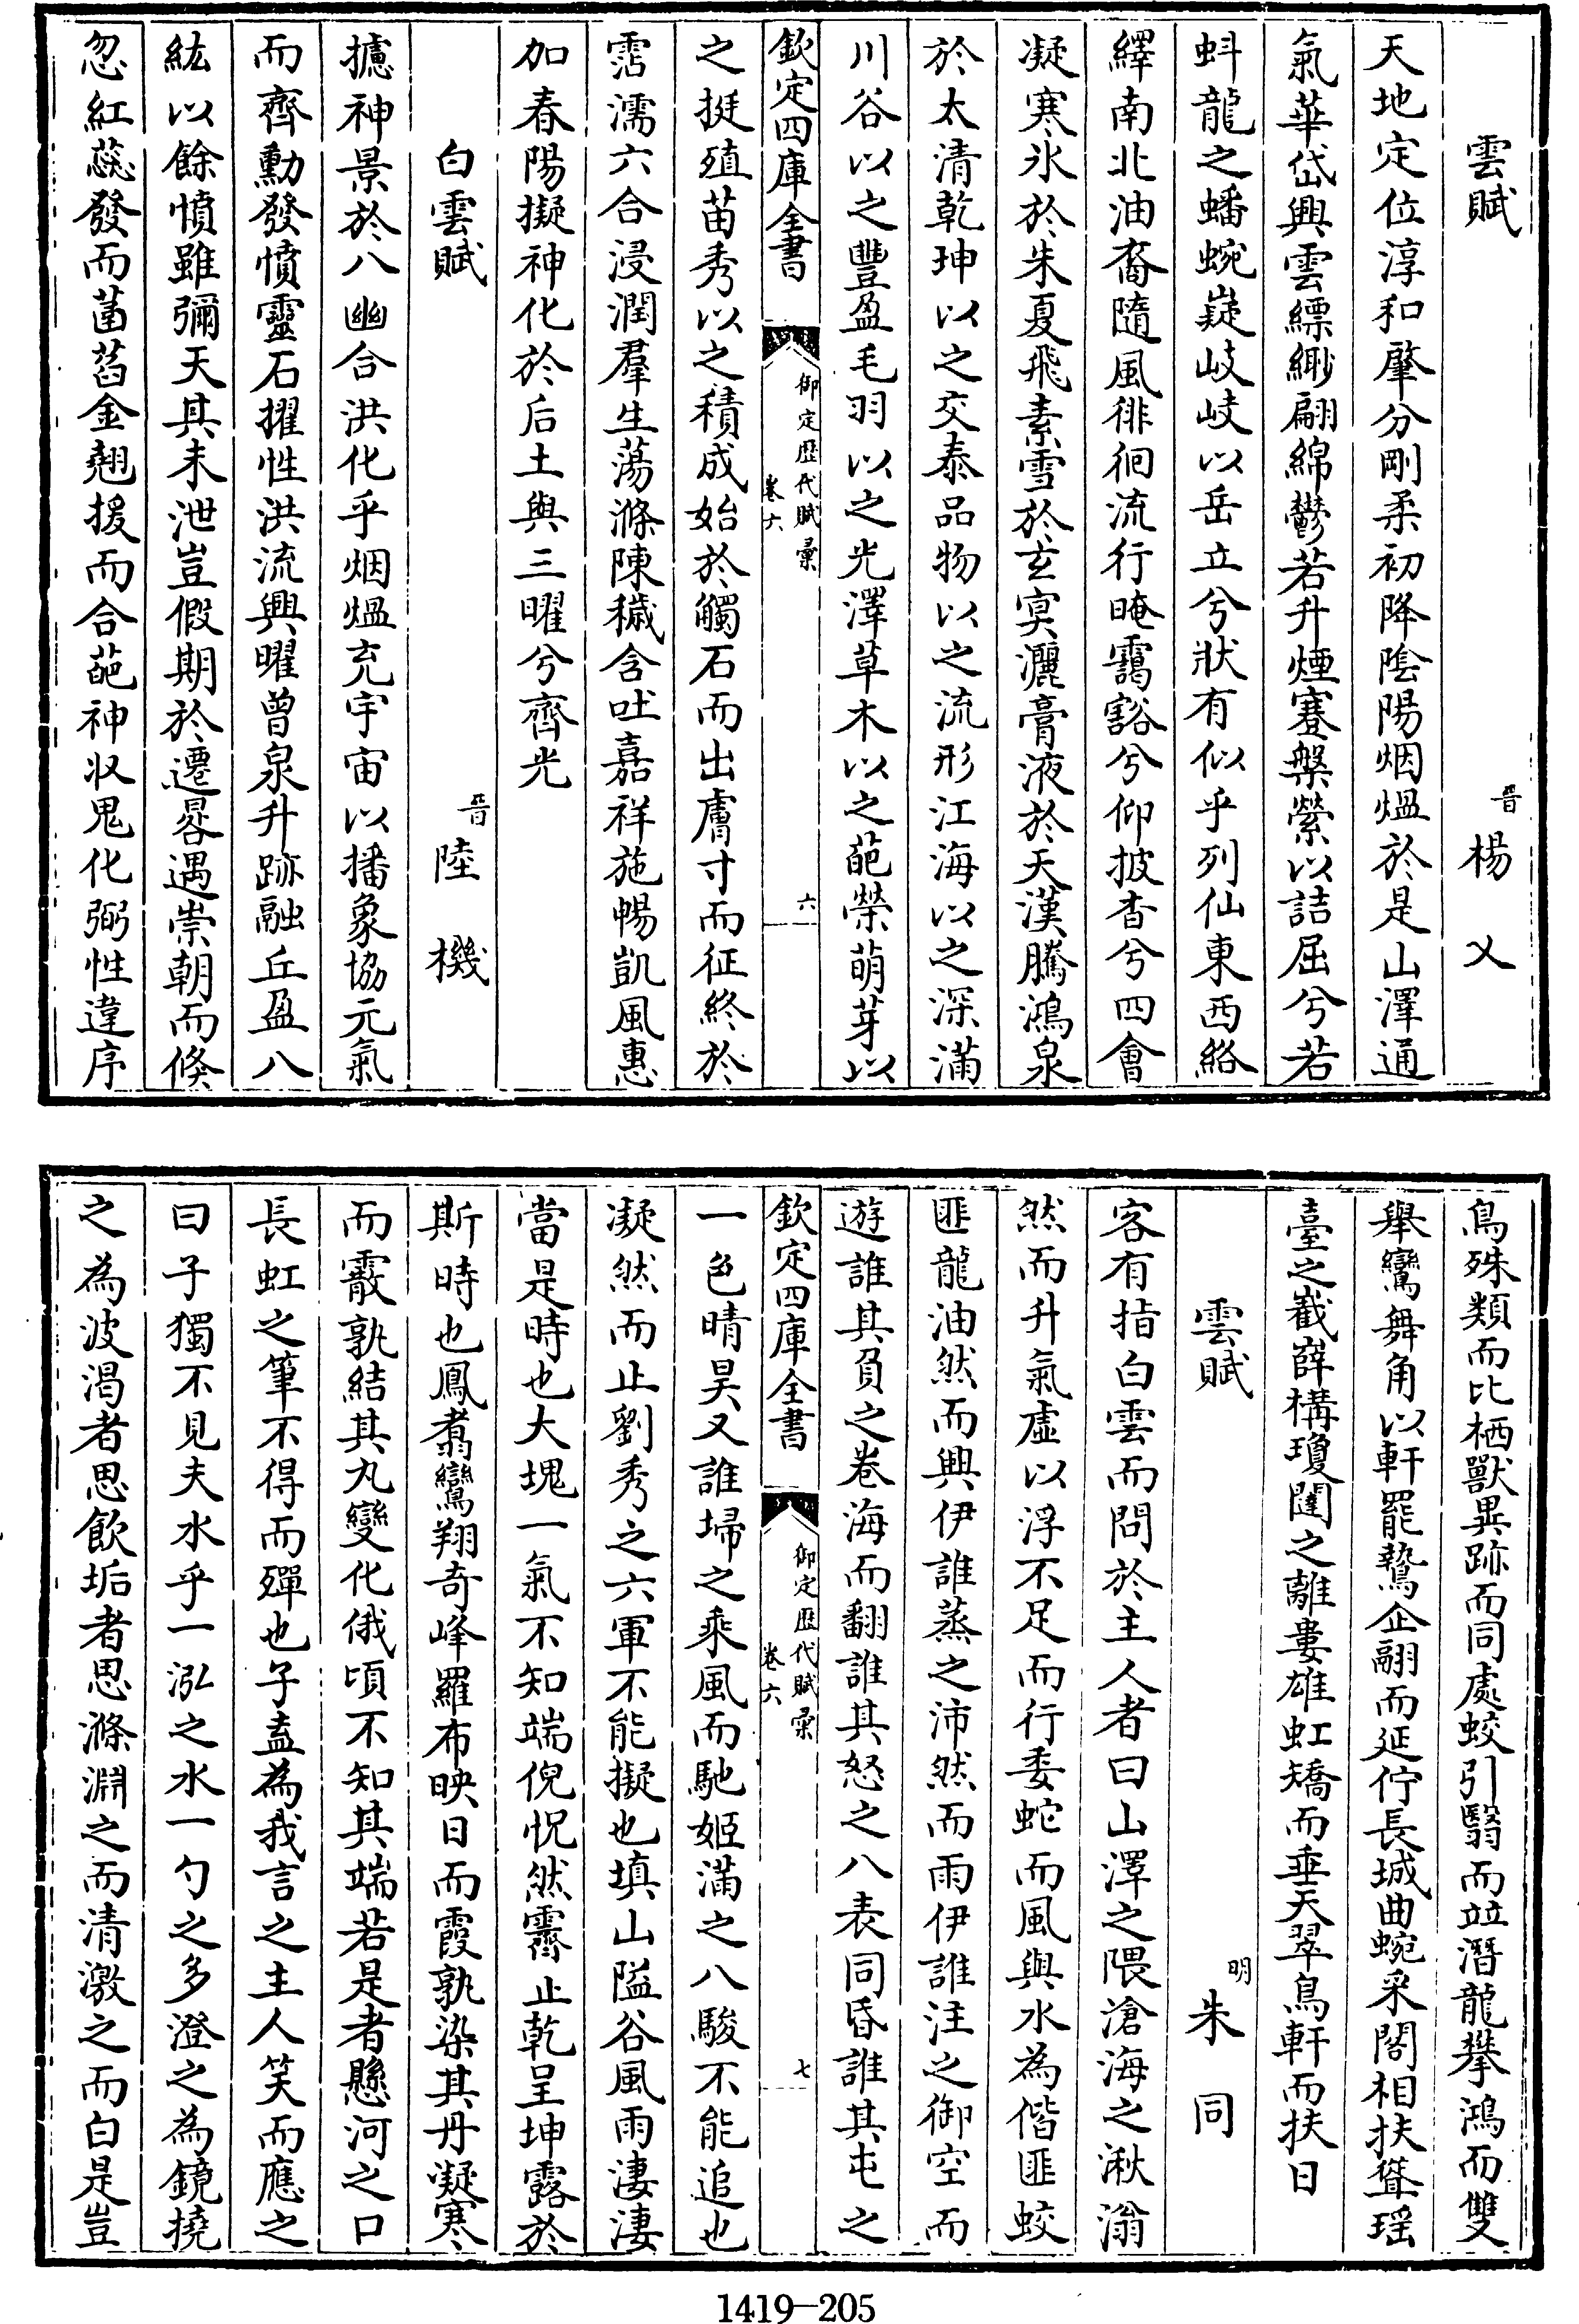 雲賦
晉楊乂
天地定位淳和肇分剛柔初降隂陽烟熅於是山澤通
氣華岱興雲縹緲翩綿鬱若升煙蹇槃縈以詰屈兮若
虯龍之蟠蜿嶷岐岐以岳立兮狀有似乎列仙東西絡
繹南北油裔隨風徘徊流行晻靄豁兮仰披杳兮四會
凝寒氷於朱夏飛素雪於玄㝠灑膏液於天漢騰鴻泉
於太清乾坤以之交泰品物以之流形江海以之深滿
川谷以之豐盈毛羽以之光澤草木以之葩榮萌芽以
欽定四庫全書
御定歴代賦彚
卷六
六
之挺殖苗秀以之積成始於觸石而出膚寸而征終於
霑濡六合浸潤羣生蕩滌陳穢含吐嘉祥施暢凱風惠
加春陽擬神化於后土與三曜兮齊光
白雲賦
晉陸機
攄神景於八幽合洪化乎烟熅充宇宙以播象協元氣
而齊勳發憤靈石擢性洪流興曜曾泉升跡融丘盈八
紘以餘憤雖彌天其未泄豈假期於遷晷遇崇朝而倐
忽紅蕊發而菡萏金翹援而合葩神收鬼化弼性違序
鳥殊類而比栖獸異跡而同處蛟引翳而竝潛龍攀鴻而雙
舉鸞舞角以軒罷鷙企翮而延佇長城曲蜿采閣相扶聳瑶
臺之嶻嶭構瓊闥之離婁雄虹矯而垂天翠鳥軒而扶日
雲賦
明朱同
客有指白雲而問於主人者曰山澤之隈滄海之湫滃
然而升氣虛以浮不足而行委蛇而風與水為偕匪蛟
匪龍油然而興伊誰蒸之沛然而雨伊誰注之御空而
遊誰其負之卷海而翻誰其怒之八表同昏誰其屯之
欽定四庫全書
御定歴代賦彚
卷六
七
一色晴昊又誰埽之乘風而馳姬滿之八駿不能追也
凝然而止劉秀之六軍不能擬也填山隘谷風雨淒淒
當是時也大塊一氣不知端倪怳然霽止乾呈坤露於
斯時也鳳翥鸞翔奇峰羅布映日而霞孰染其丹凝寒
而霰孰結其丸變化俄頃不知其端若是者懸河之口
長虹之筆不得而殫也子盍為我言之主人笑而應之
曰子獨不見夫水乎一泓之水一勺之多澄之為鏡撓
之為波渴者思飲垢者思滌淵之而清激之而白是豈
1419—205